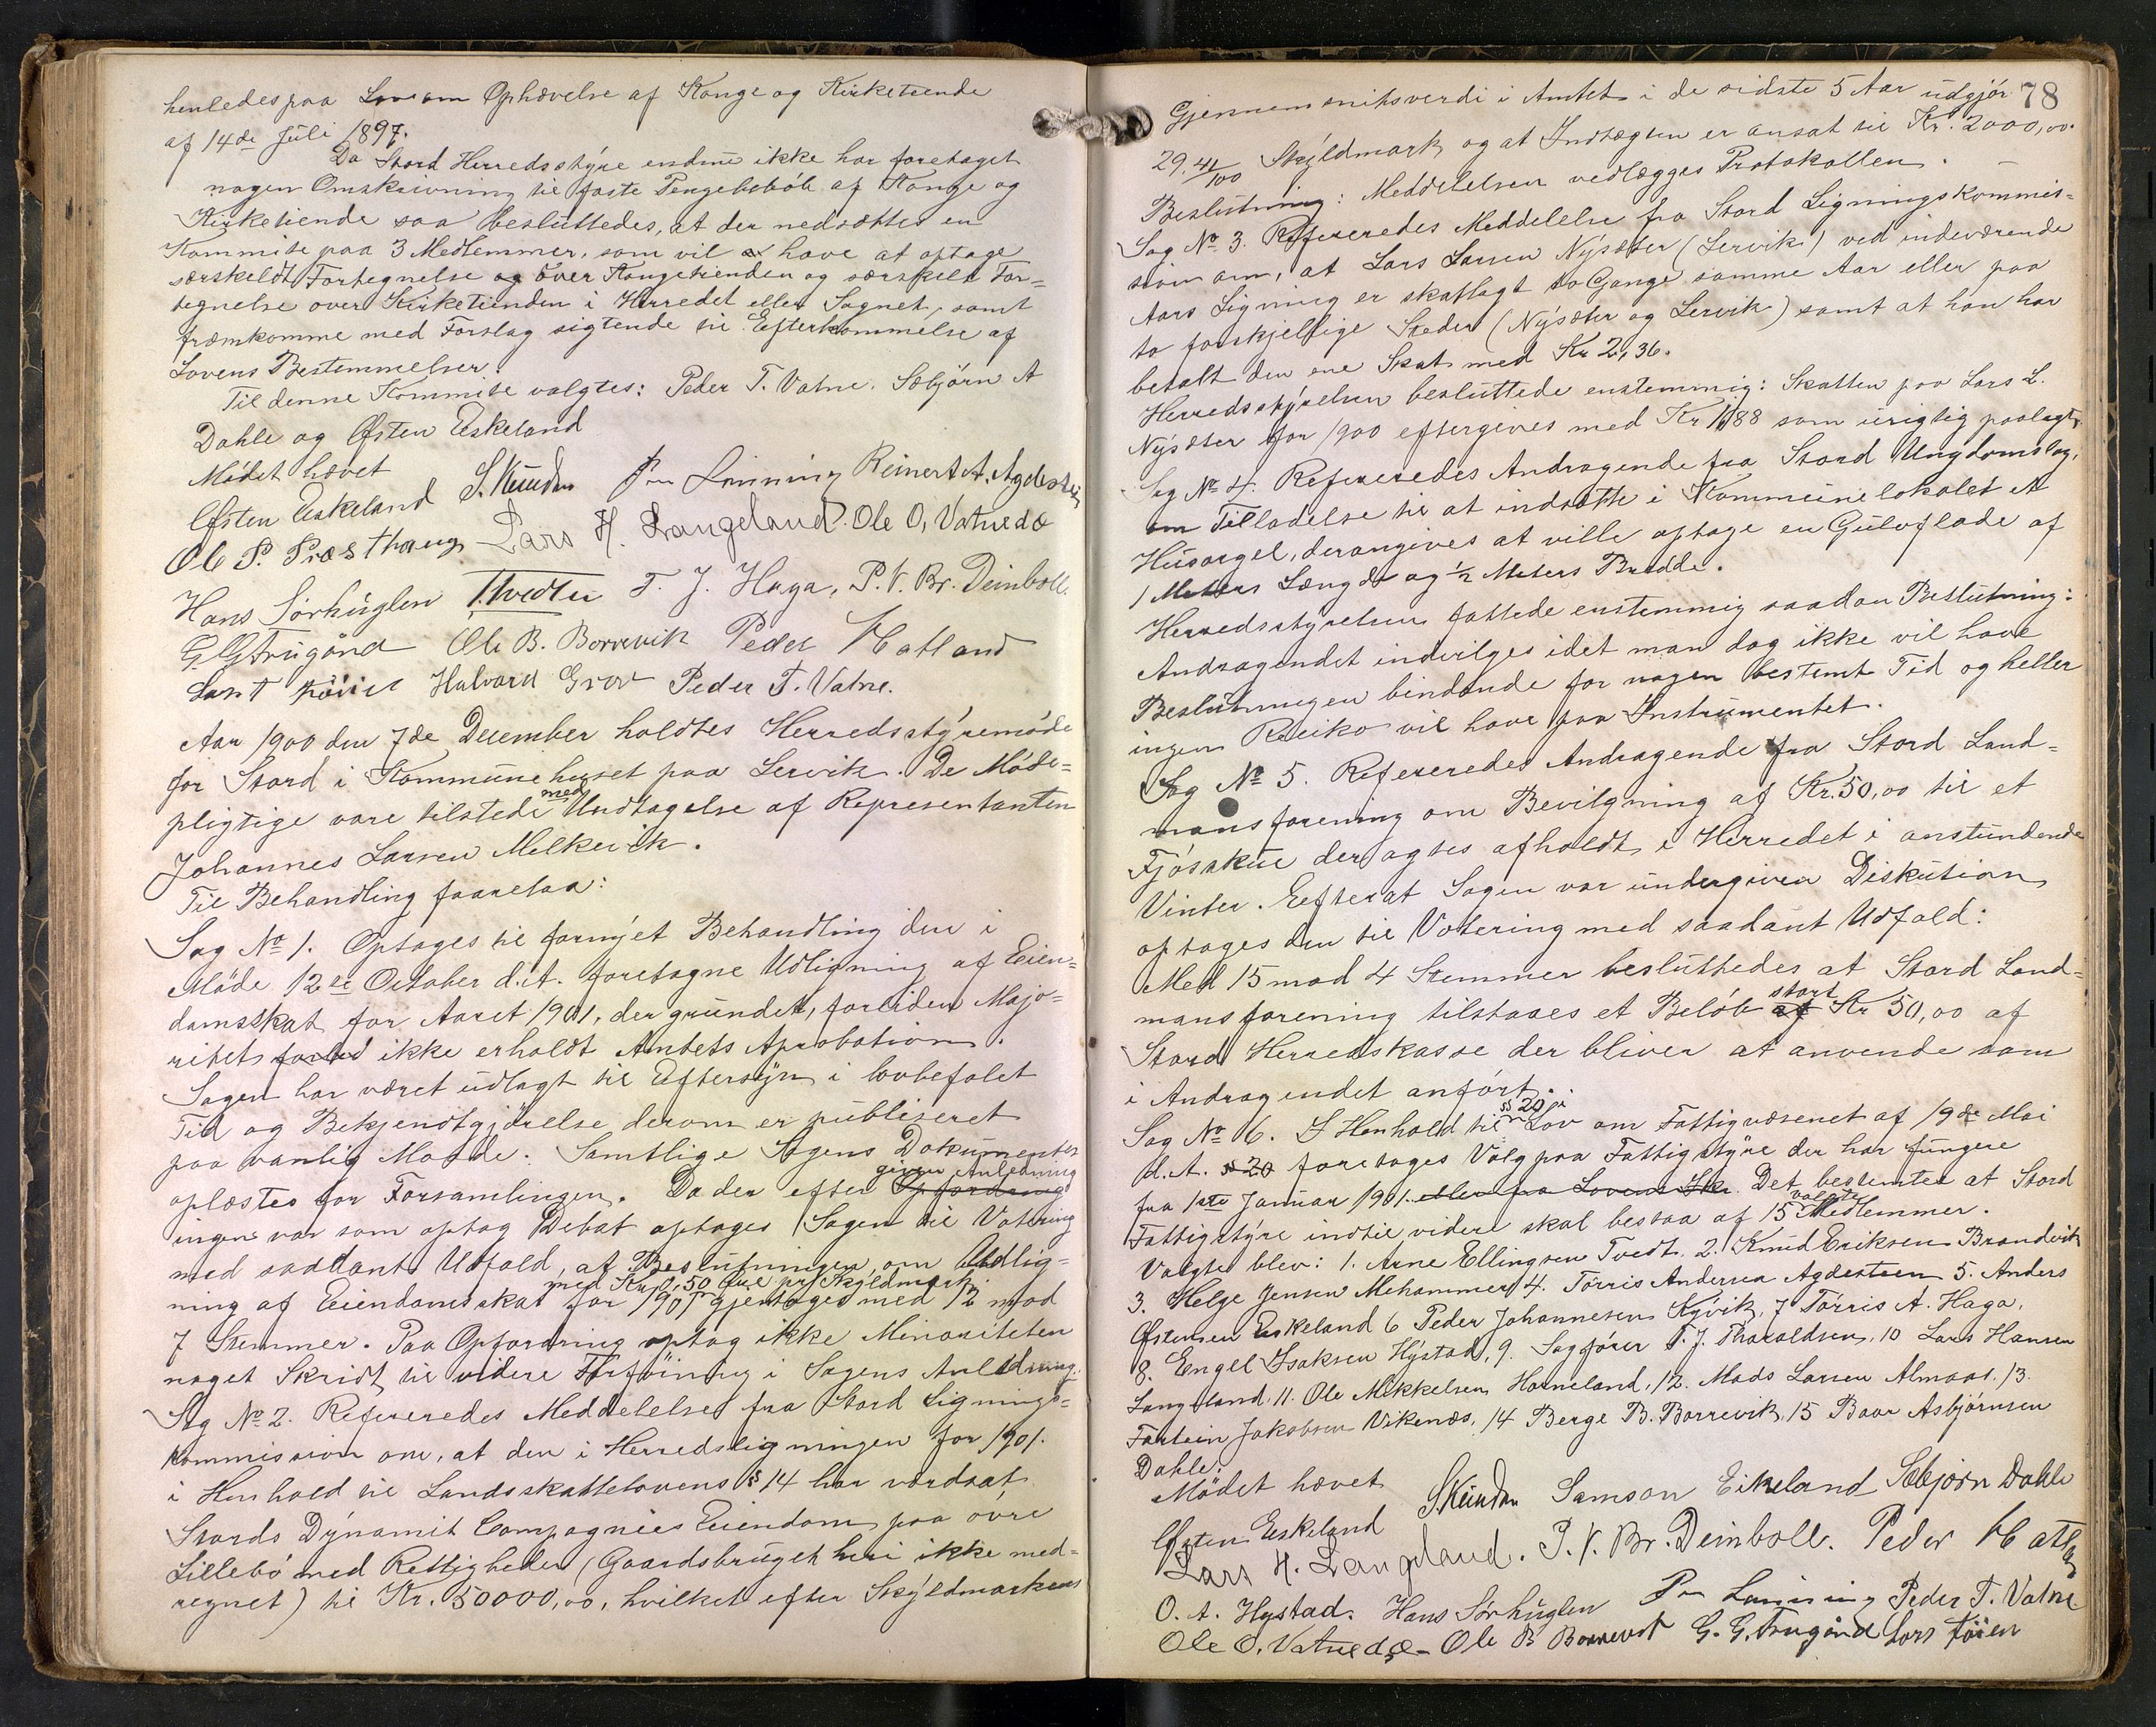 henledes paa Lov om Ophævelse af Konge og Kirketiende
af 14de Juli 1897.
Da Stord Herredsstýre endnu ikke har foretaget
nogen Omskrivning til faste Pengebeløb af Konge og
Kirketiende saa besluttedes, at der nedsættes en
Kommite paa 3 Medlemmer, som vil have at optage
særskeldt Fortegnelse og over Kongetienden og særskelt For-
tegnelse over Kirketienden i Herredet eller Sognet, samt
fræmkomme med Forslag sigtende til Efterkommelse af
Lovens Bestemmelser.
Til denne Kommite valgtes: Peder T. Vatne. Sæbjörn A
Dahle og Østen Eskeland
Mödet hævet
Østen Eskeland S. Knudsen Reinert A. Agdestein
Ole P. Præsthaug Lars H. Langeland. Ole O. Vatnedæ
Hans Sørhuglen T. Tvedten T. J. Haga, P. V. Br. Deinboll.
G. G. Frugård Ole B. Borrevik Peder Hatland
Lars T Halvard Grov Peder T. Vatne.
Aar 1900 den 7de December holdtes Herredsstýremöde
for Stord i Kommunehuset paa Lervik. De Möde-
pligtige vare tilstede med Undtagelse af Representanten
Johannes Larsen Melkevik.
Til Behandling foarelaa:
Sag No 1. Optages til fornýet Behandling den i
Möde 12te October d.A. foretagne Udligning af Eien-
damsskat for Aaret 1901, der grundet, forliden Majo-
ritet forled ikke erholdt Amtets Aprobation.
Sagen har været udlagt til Eftersýn i lovbefalet
Tid og Bekjendtgjörelse derom er publiseret
paa vanlig Maade. Samtlige Sagens Dokumenter
oplæstes for Forsamlingen. Da der efter Opfordring given Anledning
ingen var som optog Debat optoges Sagen til Votering
med saadant Udfald, at Beslutningen om Udlig-
ning af Eiendomsskat for 1901 med Kr. 0,50 Øre pr Skyldmark gjentoges med 12 mod
7 Stemmer. Paa Opfordring optog ikke Minoriteten
noget Skridt til videre Forföining i Sagens Anledning.
Sag No 2. Refereredes Meddelelse fra Stord Lignings-
kommission om, at den i Herredsligningen for 1901.
i Henhold til Landsskattelovens § 14 har værdsat
Stords Dýnamit Compagnies Eiendom paa övre
Lillebö med Rettigheder (Gaardsbruget heri ikke med-
regnet) til Kr. 50000,00, hvilket efter Skýldmarkens
78
Gjennemsnitsverdi i Amtet i de sidste 5 Aar udgjör
29.41/100 Skýldmark og at Indtægten er ansat til Kr. 2000,00.
Beslutning: Meddelelsen vedlægges Protokollen.
Sag No 3. Refereredes Meddelelse fra Stord Ligningskommis-
sion om, at Lars Larsen Nýsæter (Lervik) ved indeværende
Aars Ligning er skatlagt to Gange samme Aar eller paa
to forskjellige Steder (Nýsæter og Lervik) samt at han har
betalt den ene Skat med Kr 2,36.
Herredsstýrelsen besluttede enstemmig: Skatten paa Lars L.
Nýsæter for 1900 eftergives med Kr 1,88 som urigtig paalagt.
Sag No 4. Refereredes Andragende fra Stord Ungdomslag.
om Tilladelse til at indsætte i Kommunelokalet et
Husorgel, der angives at ville optage en Gulvflade af
1 Meters Længde og 1/2 Meters Bredde.
Herredsstýrelsen fattede enstemmig saadan Beslutning:
Andragendet indvilges idet man dog ikke vil have
Beslutningen bindende for nogen bestemt Tid og heller
ingen Risiko vil have paa Instrumentet.
Sag No 5. Refereredes Andragende fra Stord Land-
mansforening om Bevilgning af Kr. 50,00 til et
Fjösskue der agtes afholdt i Herredet i anstundende
Vinter. Efterat Sagen var undergiven Diskution
optoges den til Votering med saadant Udfald:
Med 15 mod 4 Stemmer besluttedes at Stord Land-
mansforening tilstaaes et Belöb af stort Kr 50,00 af
Stord Herredskasse der bliver at anvende som
i Andragendet anfört.
Sag No 6. I Henhold til § 20 i Lov om Fattigvæsenet af 19de Mai
d.A. § 20 foretoges Valg paa Fattigstýre der har fungere
fra 1ste Januar 1901. eller fra Lovens Ikr. Det bestemtes at Stord
Fattigstýre indtil videre skal bestaa af 15 valgte Medlemmer.
Valgte blev: 1. Arne Ellingsen Tvedt. 2. Knud Eriksen Brandvik
3. Helge Jensen Mehammer 4. Törris Andersen Agdesteen 5. Anders
Østensen Eskeland 6 Peder Johannesen Kyvik, 7 Törris A. Haga.
8. Engel Isaksen Hýstad, 9. Sagförer T. J. Tharaldsen, 10 Lars Hansen
Langeland. 11. Ole Mikkelsen Horneland, 12. Mads Larsen Almaas. 13.
Fartein Jakobsen Vikenæs. 14 Berge B. Borrevik, 15 Baar Asbjörnsen
Dahle.
Mödet hævet
Østen Eskeland S. Knudsen Samson Eikeland Sebjørn Dahle
Lars H. Langeland. P. V. Br. Deinboll. Peder Hatland
O. A. Hystad. Hans Sørhuglen Peder T. Vatne
Ole O. Vatnedæ Ole B Borrevik G. G. Frugård Lars